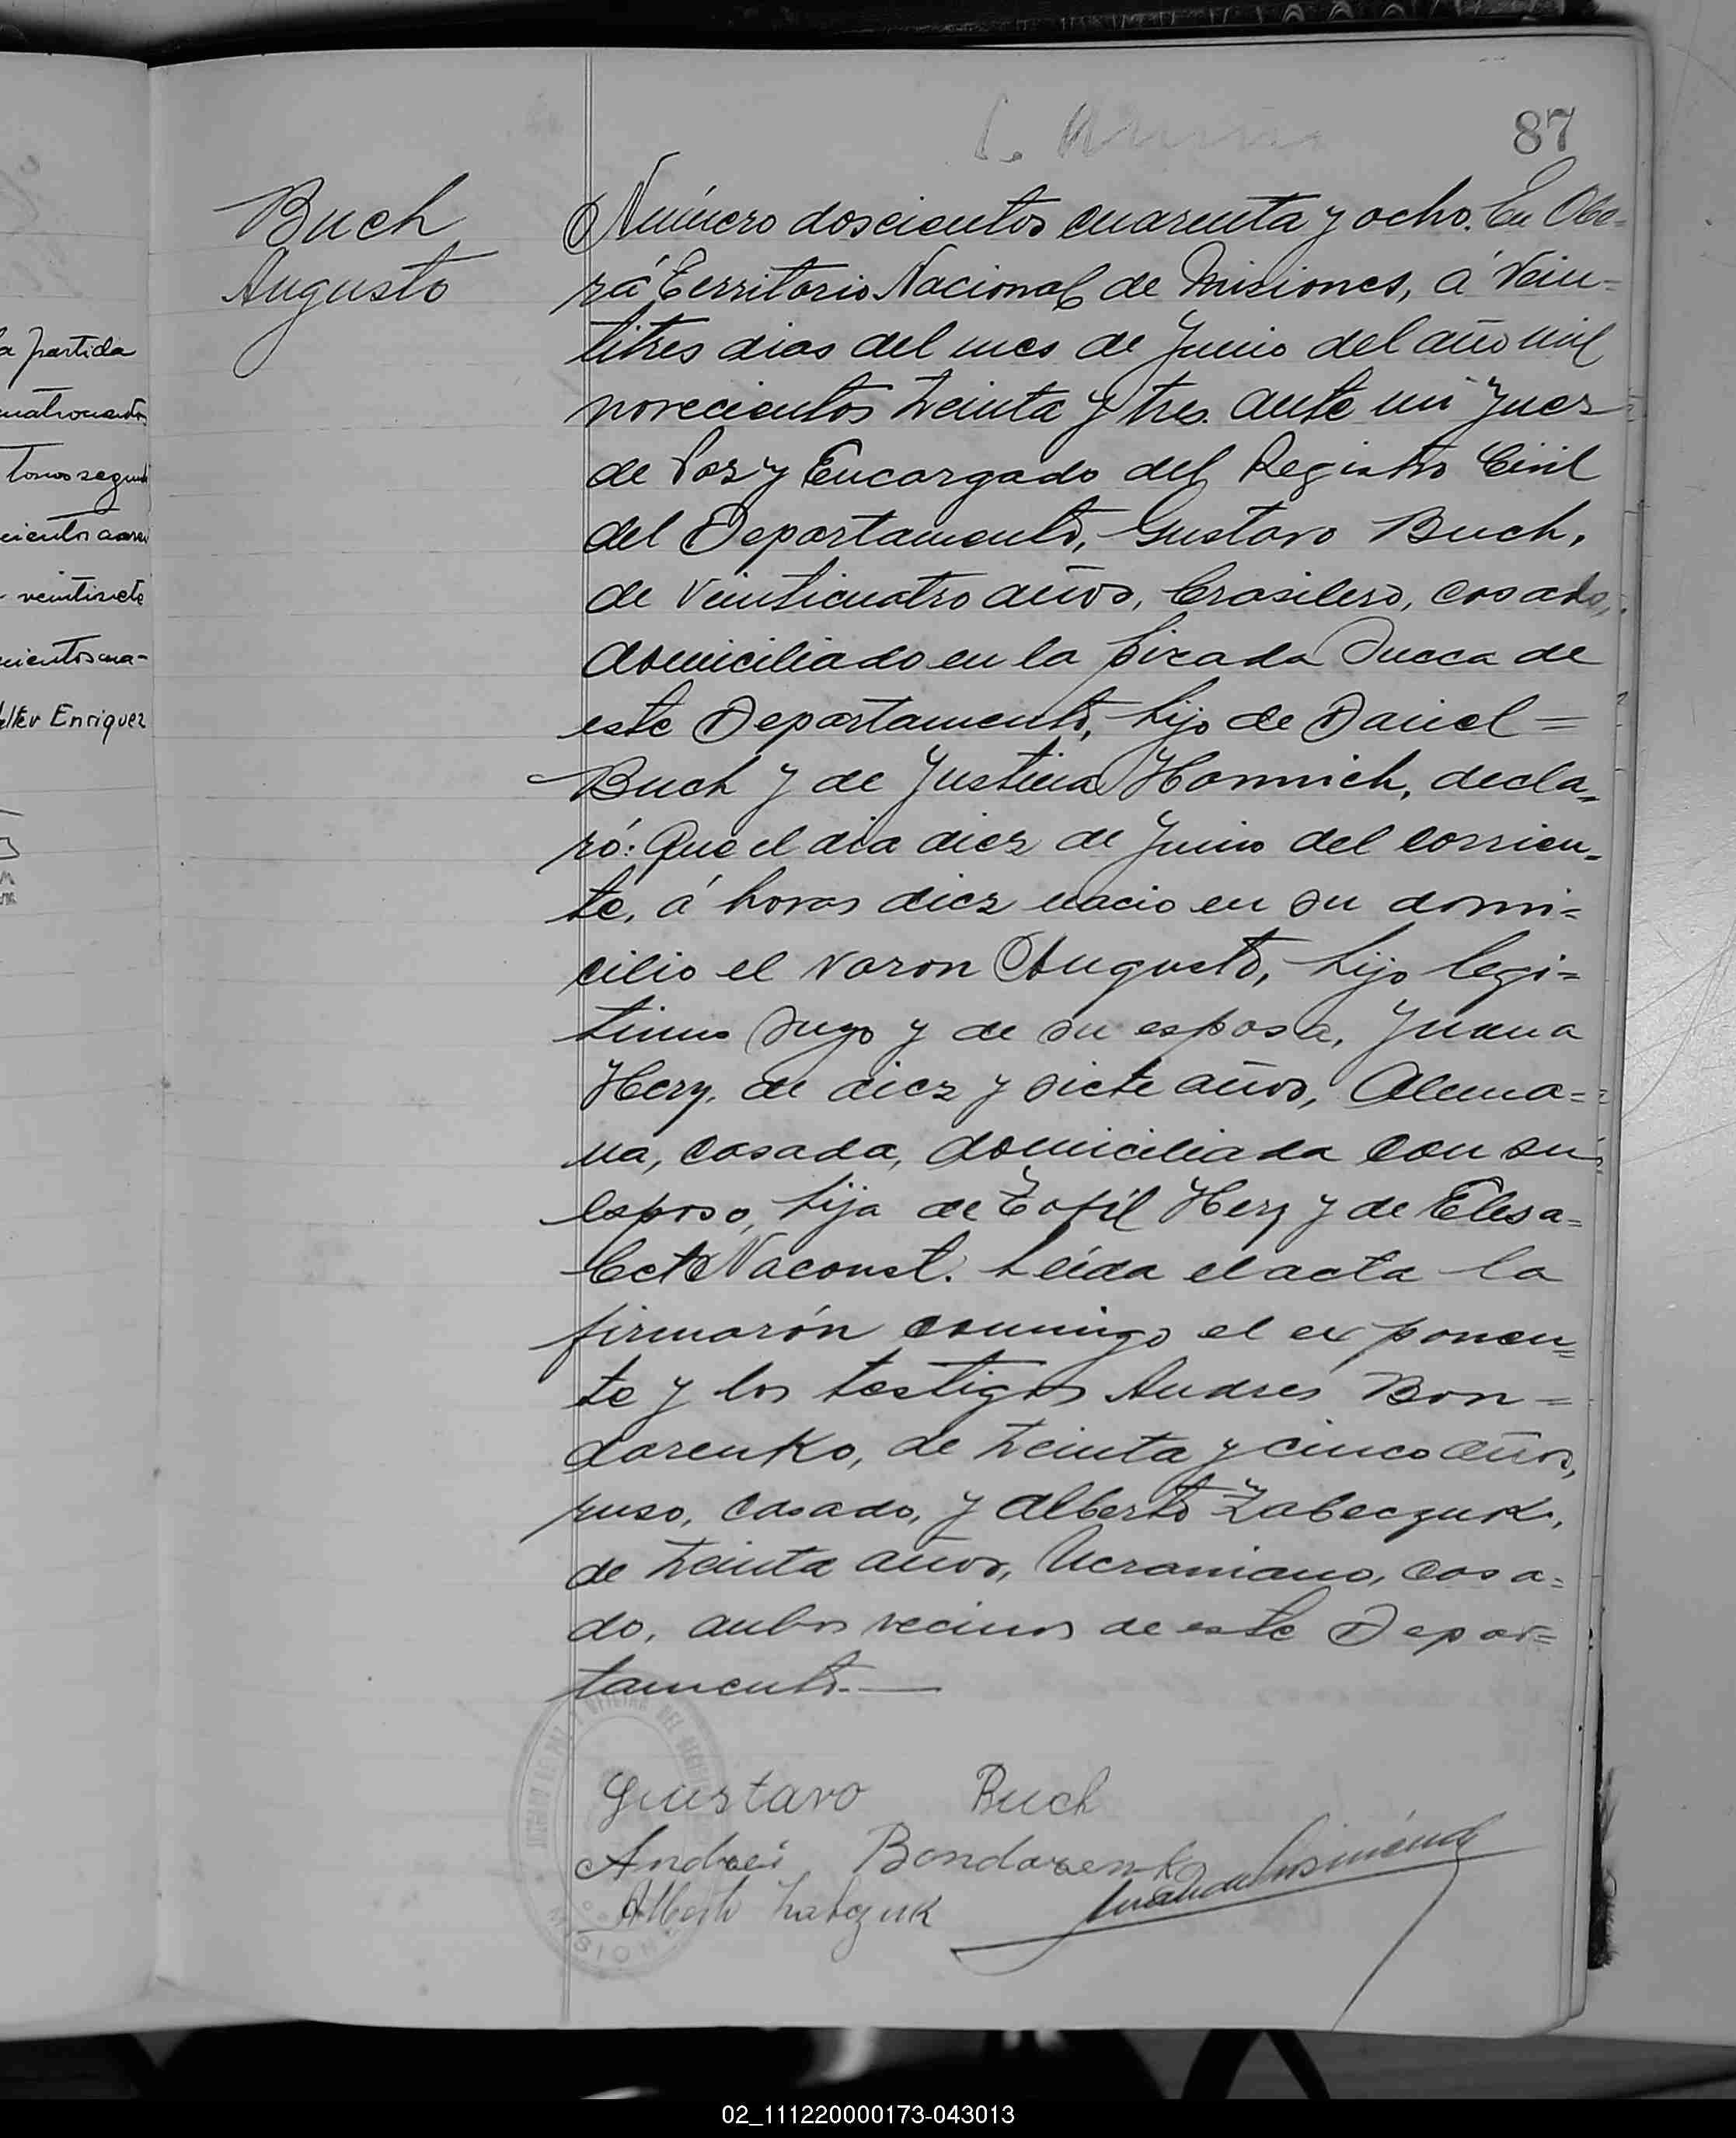 87
Buch
Augusto
Número doscientos cuarenta y ocho. En Obe-
rá Territorio Nacional de Misiones, á vein-
titres dias del mes de Junio del año mil
novecientos treinta y tres. ante mi Juez
de Paz y Encargado del Registro Civil
del Departamento, Gustavo Buch,
de veinticuatro años, brasilero, casado,
domiciliado en la picada Sueca de
este Departamento, hijo de Daniel =
Buch y de Justina Hornnich, decla-
ró: Que el dia diez de Junio del corrien-
te, á horas diez nacio en su domi-
cilio el varon Augusto, hijo legi-
timo suyo y de su esposa, Juana
Herz, de diez y siete años, Alema-
na, casada, domiciliada con su
esposo, hija de Tofil Herz y de Elisa-
bet Naconst. Leída el acta la
firmarón conmigo el exponen-
te y los testigos Andrés Bon-
darenko, de treinta y cinco años,
ruso, casado, y Alberto Zabeczuk,
de treinta años, Ucraniano, casa-
do, ambos vecinos de este Depar-
tamento.—
Gustavo Buch
Andrei Bondarenko
a partida
Tomo segund
veintisiete
Enriquez
MISIONES
02_111220000173-043013